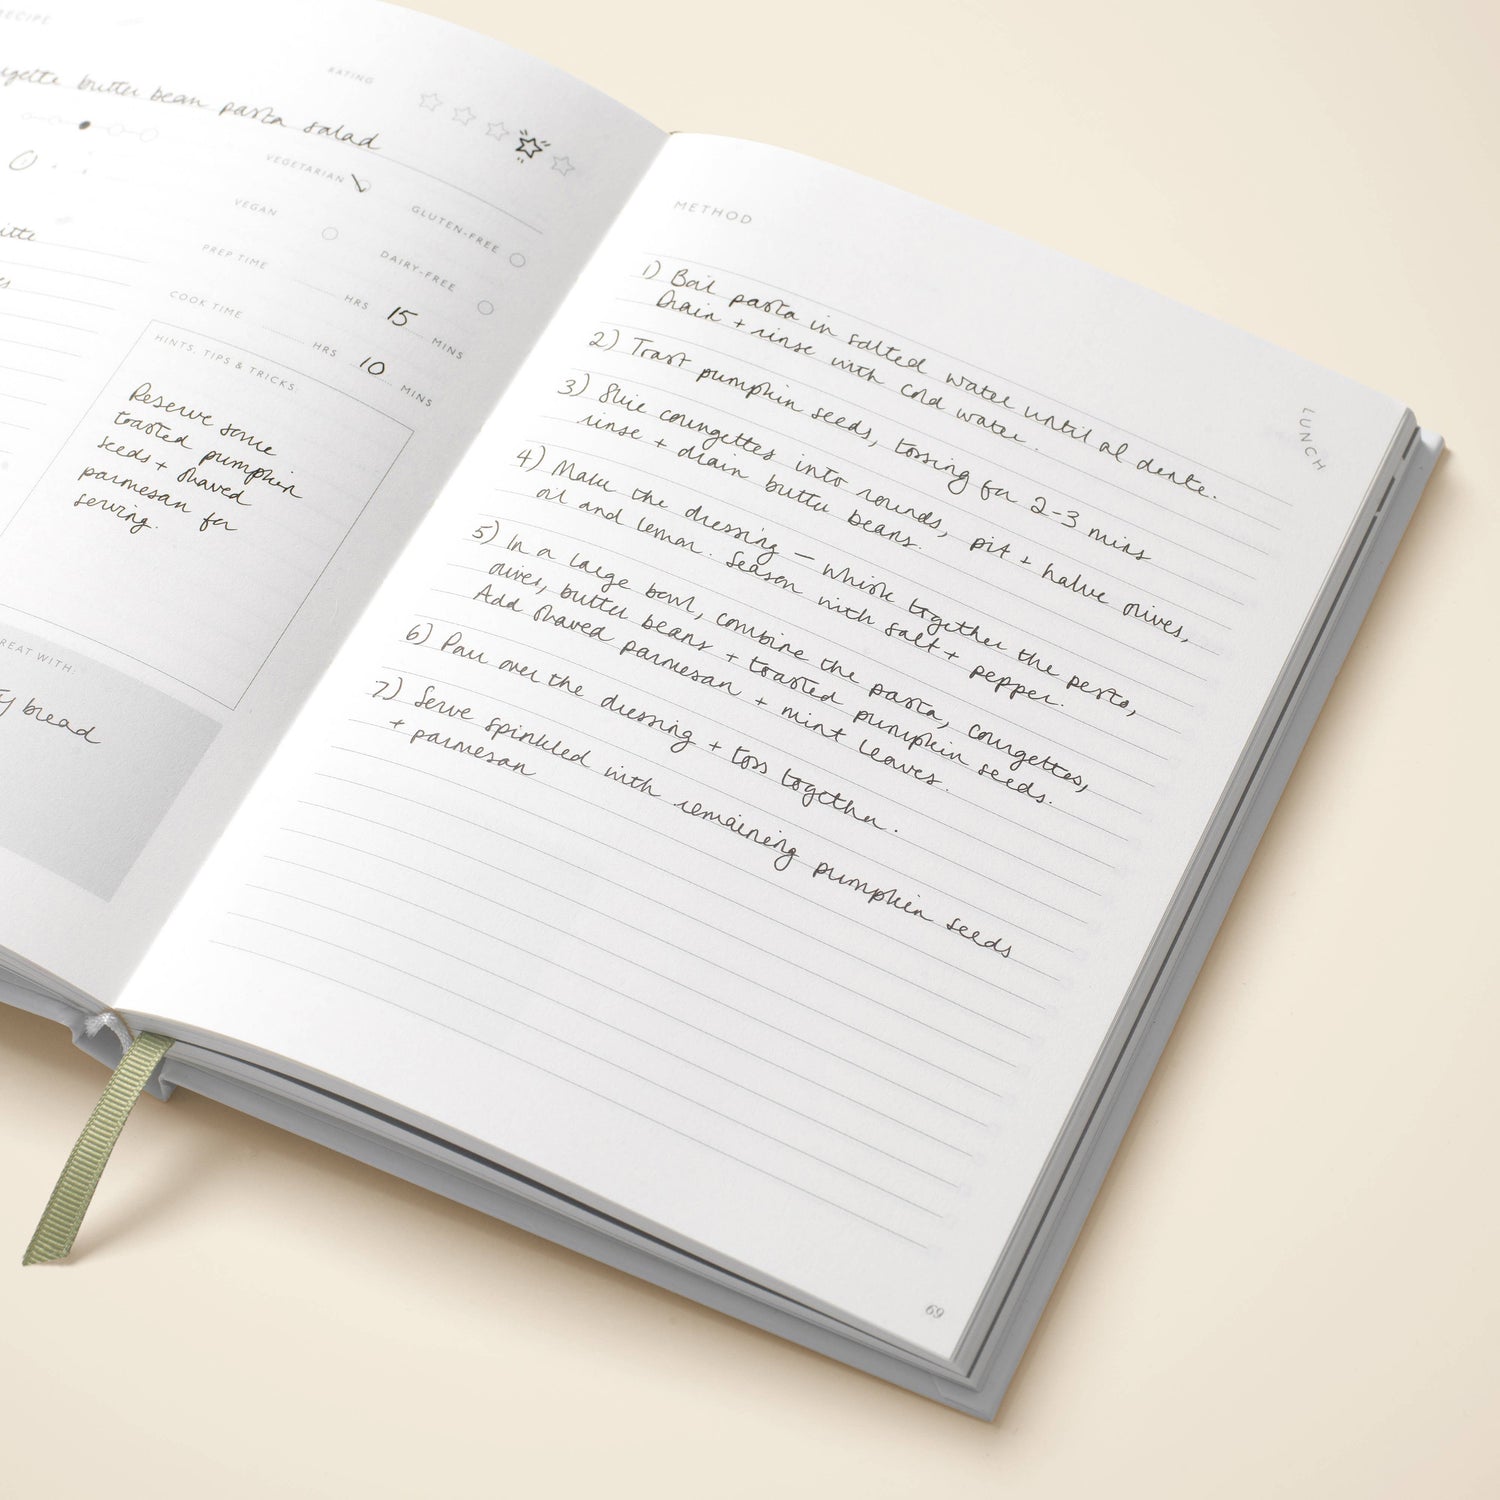 RECIPE
butter bean pasta salad
RATING
VEGETARIAN
GLUTEN-FREE
VEGAN
DAIRY-FREE
PREP TIME HRS 15 MINS
COOK TIME HRS 10 MINS
HINTS, TIPS & TRICKS:
Reserve some
toasted pumpkin
seeds + shaved
parmesan for
serving.
GREAT WITH:
bread
METHOD
1) Boil pasta in salted water until al dente.
Drain + rinse with cold water.
2) Toast pumpkin seeds, tossing for 2-3 mins
3) Slice courgettes into rounds, pit + halve olives,
rinse + drain butter beans.
4) Make the dressing - whisk together the pesto,
oil and lemon. Season with salt + pepper.
5) In a large bowl, combine the pasta, courgettes,
olives, butter beans + toasted pumpkin seeds.
Add shaved parmesan + mint leaves.
6) Pour over the dressing + toss together.
7) Serve sprinkled with remaining pumpkin seeds
+ parmesan
LUNCH
69